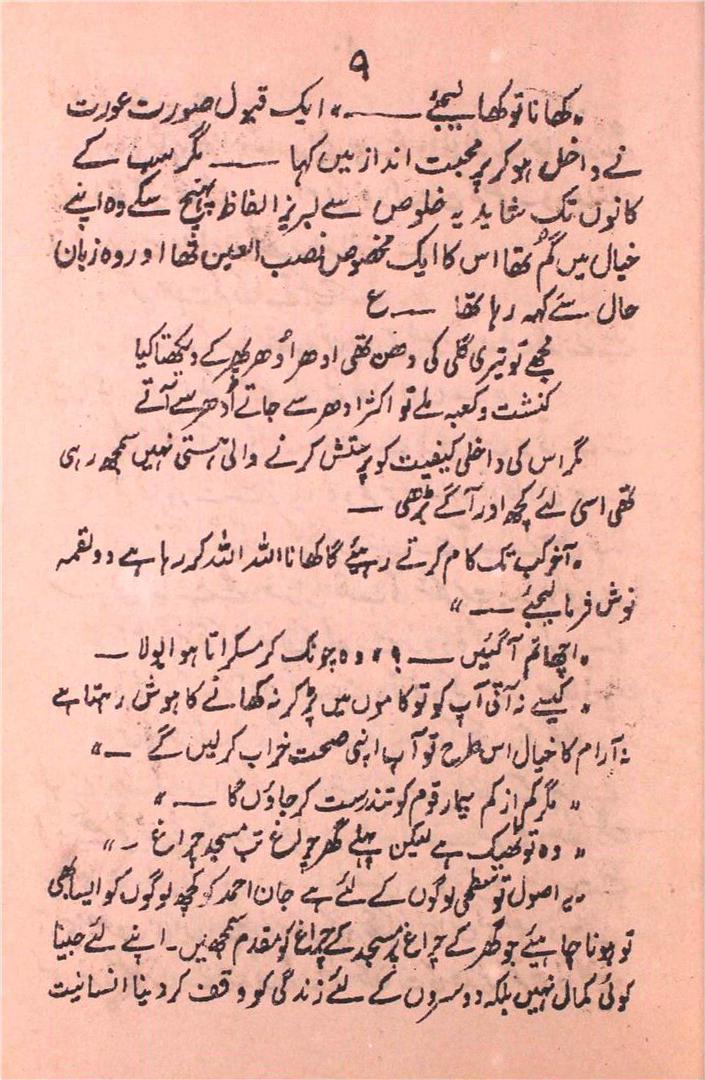 ۹
"کھانا تو کھا لیجئے ــــــ" ایک قبول صورت عورت
نے داخل ہو کر پر محبت انداز میں کہا ــــــ مگر سب کے
کانوں تک شاید یہ خلوص سے لبریز الفاظ پہنچ سکے وہ اپنے
خیال میں گم تھا اس کا ایک مخصوص نصب العین تھا اور وہ زبان
حال سے کہہ رہا تھا ــــ ع
مجھے تو تیری گلی کی دھن تھی ادھر اُدھر پھر کے دیکھتا کیا
کنشت و کعبہ ملے تو اکثر ادھر سے جاتے اُدھر سے آتے
مگر اس کی داخلی کیفیت کو پرستش کرنے والی ہستی نہیں سمجھ رہی
تھی اسی لئے کچھ اور آگے بڑھی ــ
"آخر کب تک کام کرتے رہیئے گا کھانا اللہ اللہ کر رہا ہے دو لقمہ
نوش فرما لیجئے ــــ"
"اچھا تم آگئیں ــــ؟" وہ چونک کر مسکراتا ہوا بولا ــ
"کیسے نہ آتی آپ کو تو کاموں میں پڑ کر نہ کھانے کا ہوش رہتا ہے
نہ آرام کا خیال اس طرح تو آپ اپنی صحت خراب کر لیں گے ــ"
"مگر کم از کم بیمار قوم کو تندرست کر جاؤں گا ــــ"
"وہ تو ٹھیک ہے لیکن پہلے گھر چراغ تب مسجد چراغ ــ"
"یہ اصول تو سطحی لوگوں کے لئے ہے جان احمد کو کچھ لوگوں کو ایسا بھی
تو ہونا چاہیئے جو گھر کے چراغ پر مسجد کے چراغ کو مقدم سمجھیں۔ اپنے لئے جینا
کوئی کمال نہیں بلکہ دوسروں کے لئے زندگی کو وقف کر دینا انسانیت